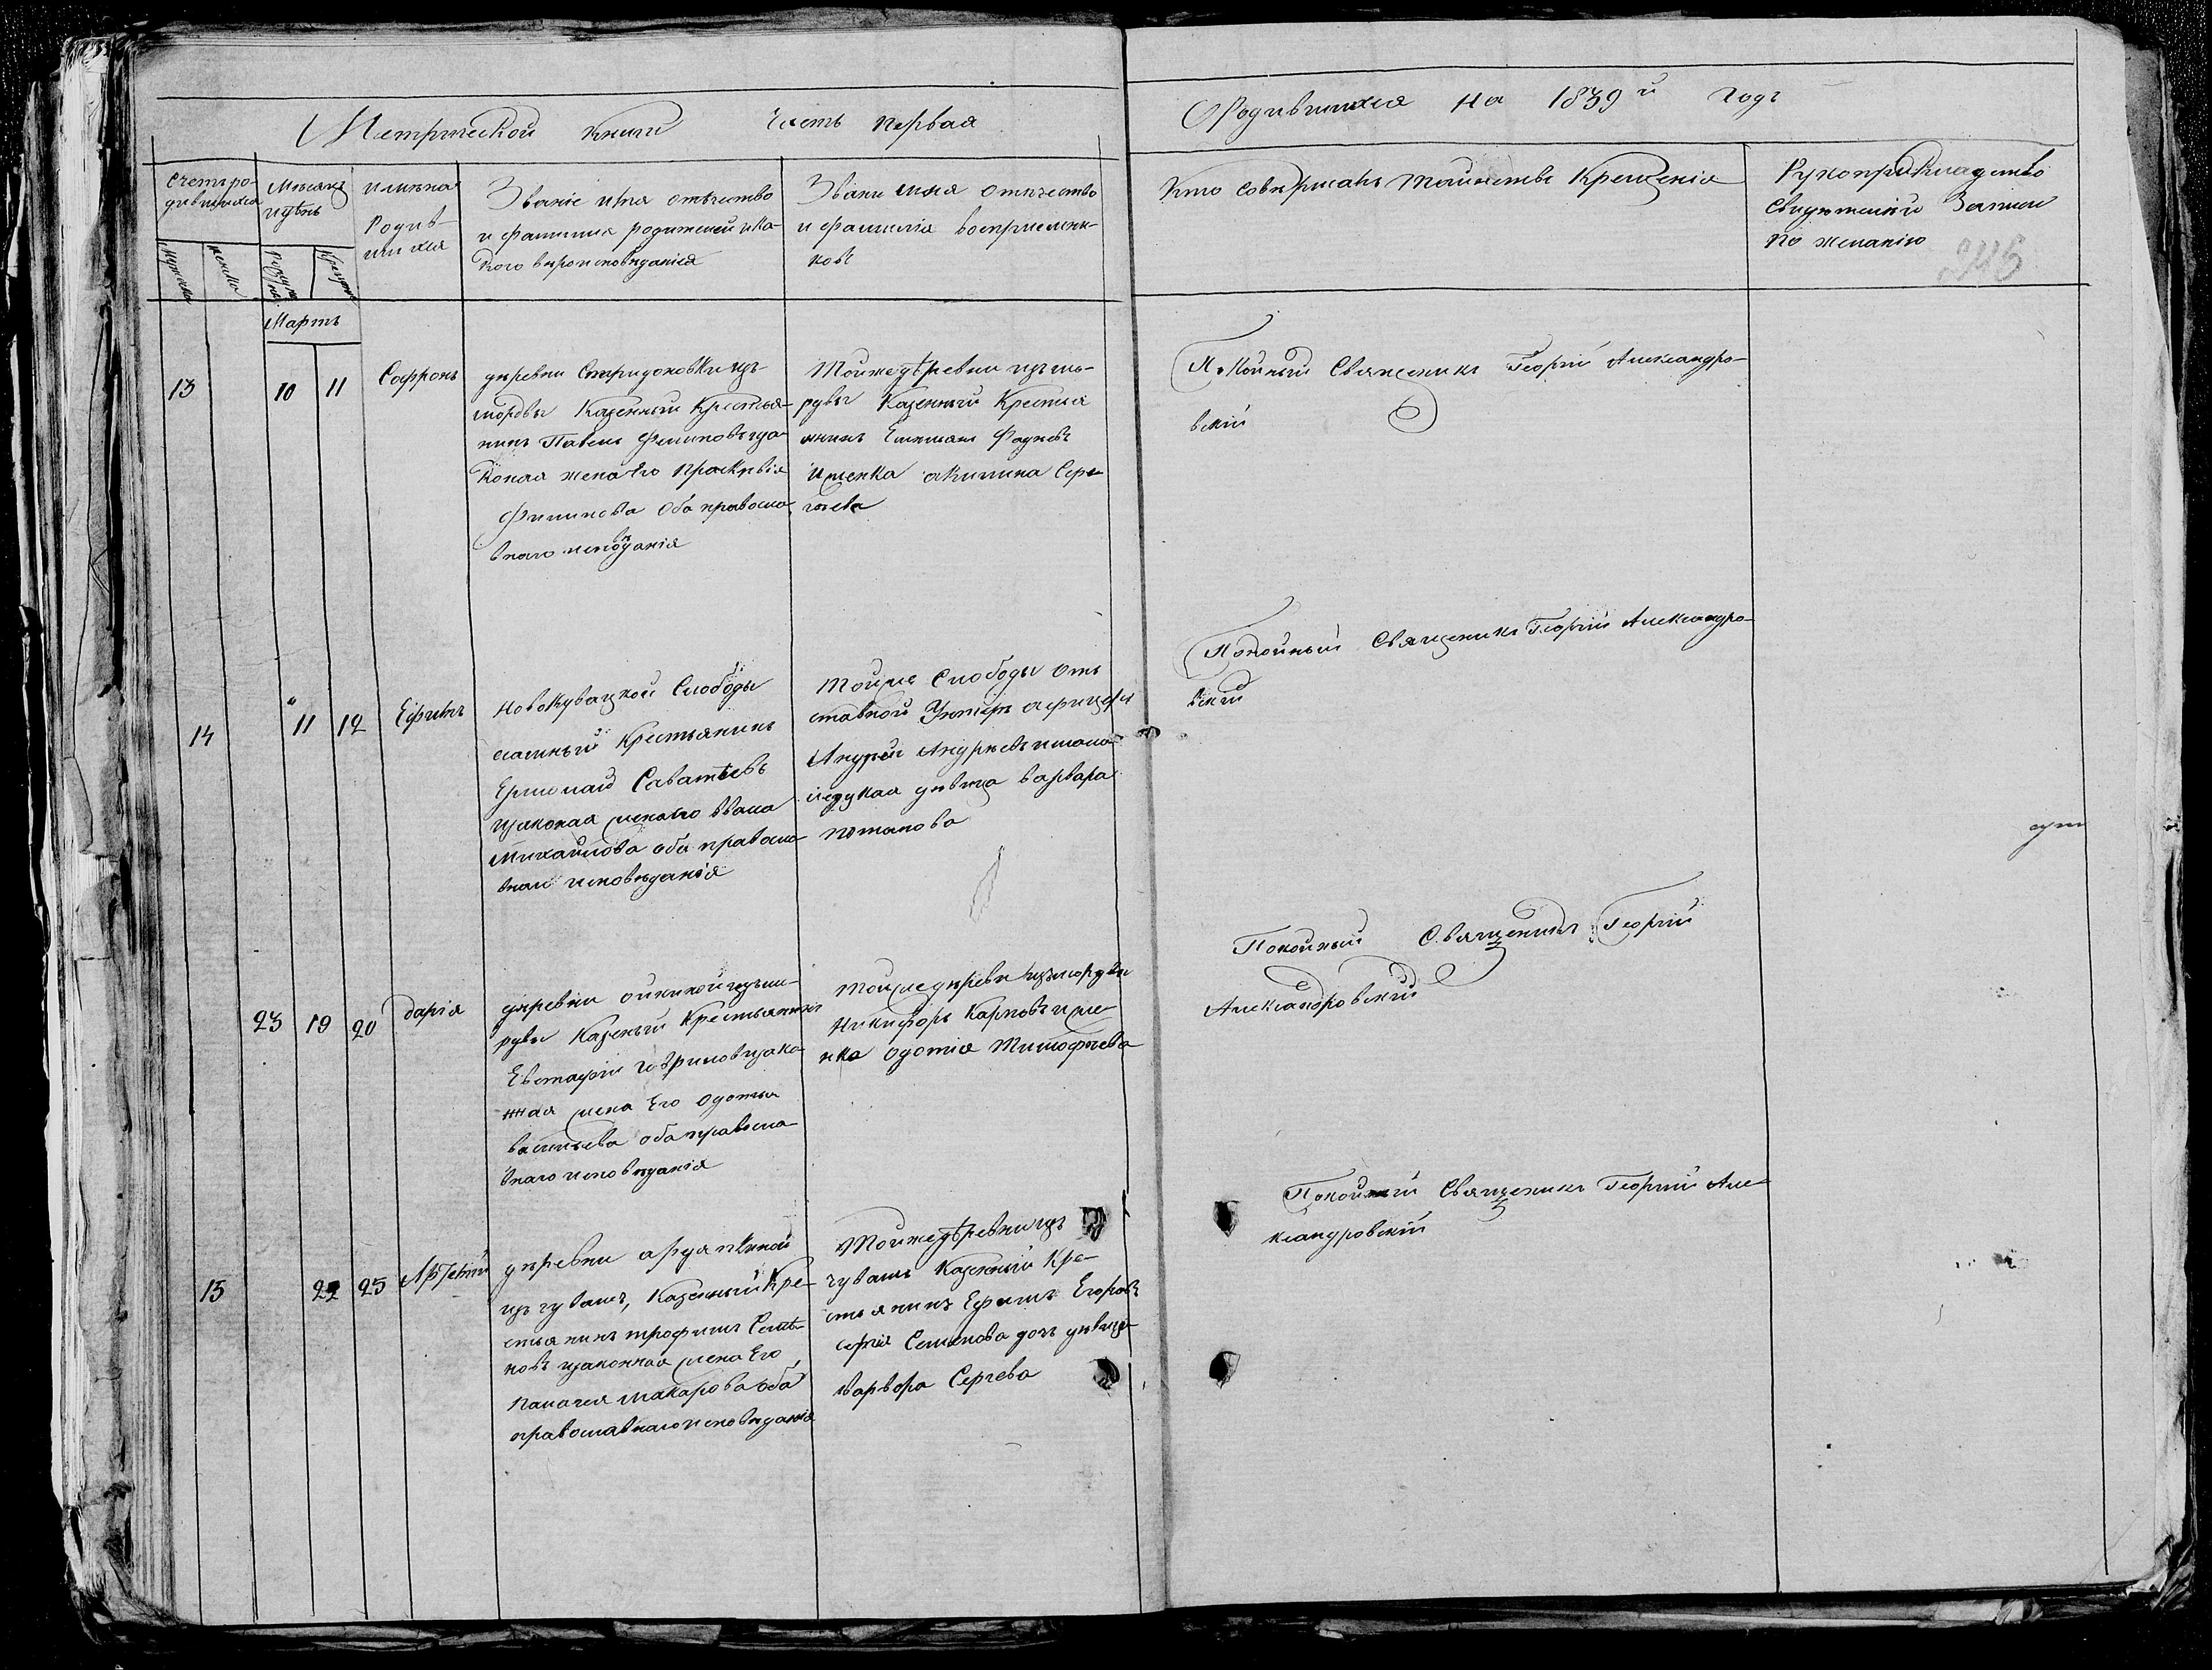 Метрической книги Часть первая
О Родившихся на 1839й Годъ
Счетъ ро-
дившихся
Мужеска
женска
Месяцъ
и день
Рожденія
Крещенія
имѣна
Родив-
шихся
Званіе имя отечество
и фамилия родителей и ка-
кого вероисповеданія
Звание имя отечество
и фамилія восприемни-
ковъ
Кто совершалъ таинство Крещенія
Рукоприкладство
Свидетелей Записи
по желанію
245
Мартъ
13
10 11
Софронъ
деревни Спиридоновки изъ
мордвы Казенный Крестья-
нинъ Павелъ Филиповъ иза-
коная жена Его Прасковія
Филипова оба правосла
внаго исповѣданія
Тойже деревни изъ мо-
рдвы Казенный Крестья
нинъ Фадѣевъ
и женка акилина Сер-
гѣева
Покойный Священикъ Георгій Александро-
вскій
14
11 12
Ефимъ
новокувацкой Слободы
Крестьянинъ
Ермолай Саватѣевъ
изаконая жена Его
Михайлова оба правосла
внаго исповѣданія
тойже Слободы от
ставной Унтеръ афицеръ
Андрей Андреевъ
дѣвица варвара
потапова
Покойный Священикъ Георгій Александро-
вскій
23 19 20
дарія
деревни ойкиной изъ мо-
рдвы Казеный Крестьянинъ
Евстафій изако-
нная жена Его
васильева оба правосла-
внаго исповѣданія
тойже деревни изъ мордвы
Никифоръ Карповъ и же
нка одотія Тимофеева
Покойный Священикъ Георгій
Александровскій
15
22 25
деревни
изъ чувашъ, Казенный Кре-
стьянинъ трофимъ Семѣ-
новъ изаконная жена Его
палагея макарова оба
православнаго исповѣданія
Тойже деревни изъ
чувашъ Казенный Кре-
стьянинъ Ефимъ Егоровъ
Семенова дочь девица
варвора Сергева
Покойный Священикъ Георгий Але-
ксандровскій